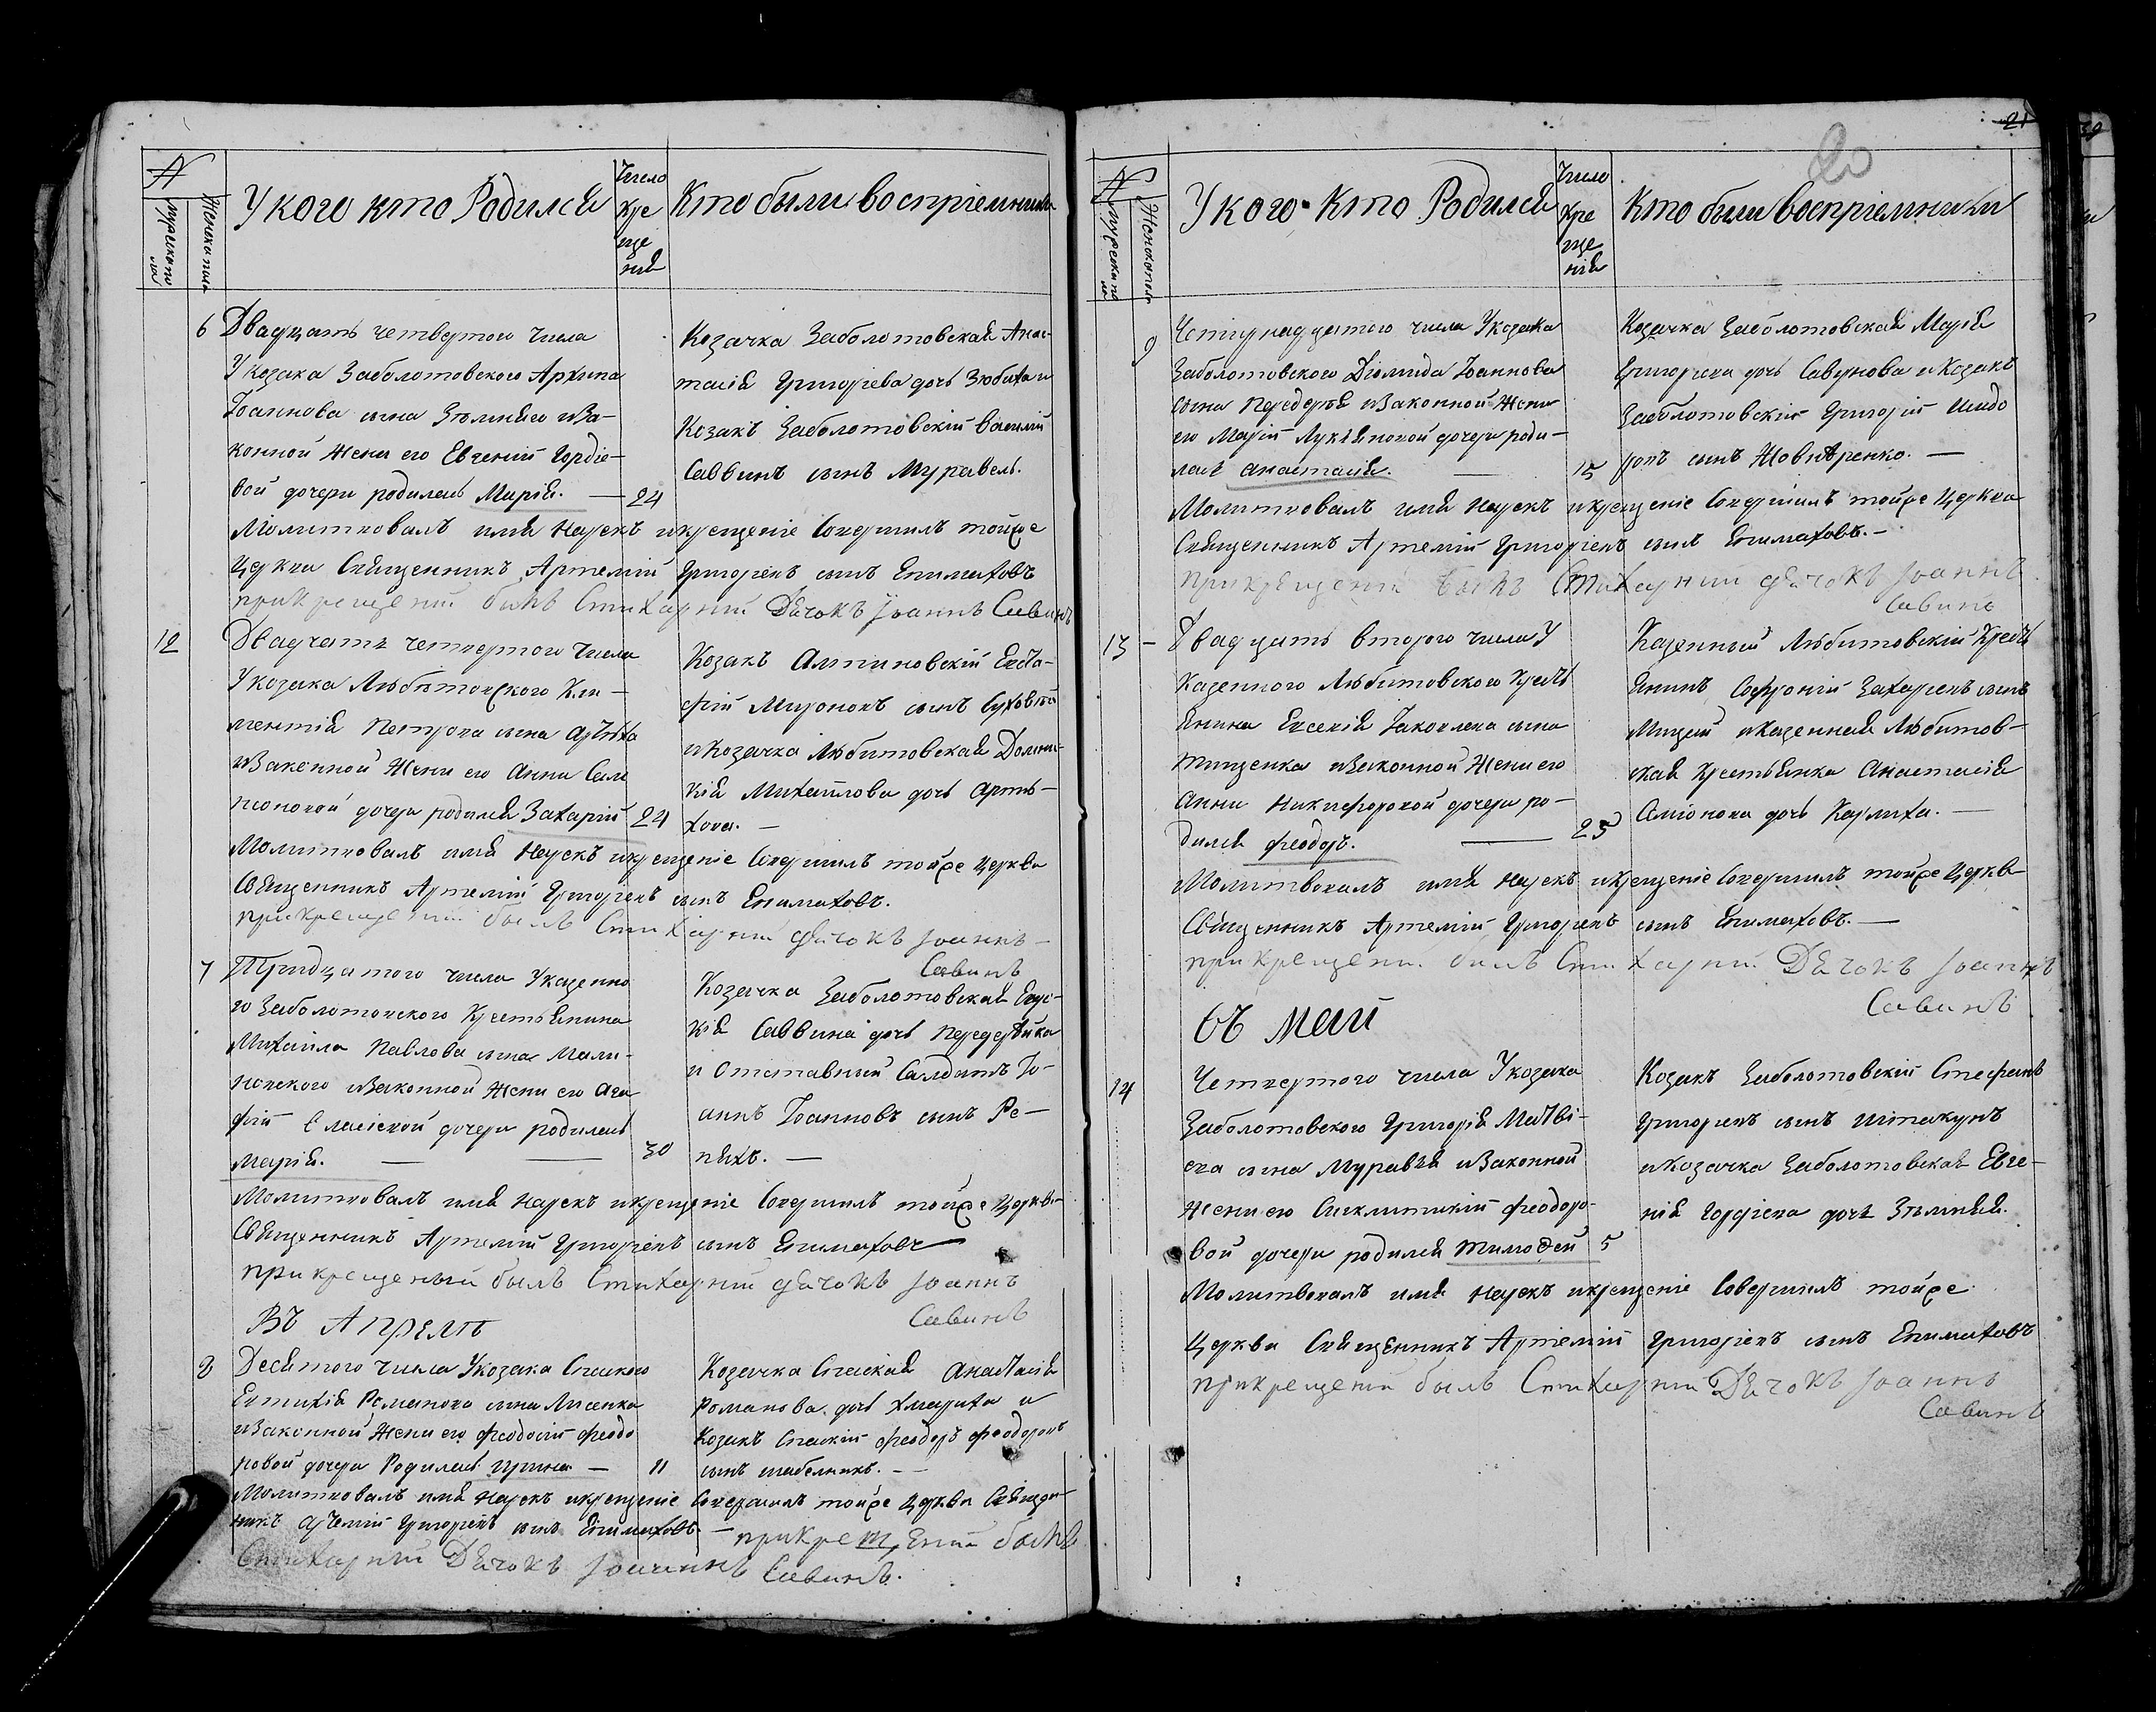 N
Мужеска по
ла
Женска пола
У кого кто Родился
Число
Кре
ще
нія
Кто были воспріемники
6 Двадцать четвертого числа
У козака Заболотовского Архипа
Іоаннова сына Зѣлинѣго и За-
конной жены его Евгеній Гордіе-
вой дочери родилась Марія. — 24
Козачка Заболотовская Анас-
тасія Григоріева дочь Зюбиха и
Козакъ Заболотовскій Василій
Саввинъ сынъ Муравель.
Молитвовалъ имя Нарекъ и крещеніе Совершилъ тойже
Церкви Священникъ Артемій Григоріевъ сынъ Епимаховъ
при крещеніи былъ Стихарній Дячокъ Іоаннъ Савинъ
12 Двадчать четвертого Числа
У козака Любѣтовского Кли-
ментія Петрова сына Артюха
и Законной Жены его Анны Сам
псоновой дочери родился Захарій 24
Козакъ Алтиновскій Евста-
фій Мироновъ сынъ Суховѣй
и Козачка Любитовская Домни-
кія Михайлова дочь Артю-
хова. —
Молитвовалъ имя Нарекъ и крещеніе Совершилъ тойже Церкви
Священникъ Артемій Григоріевъ сынъ Епимаховъ.
при крещеніи былъ Стихарній дячокъ Іоаннъ —
Савинъ
7 Тридцатого числа У казенно
го Заболотовского Крестянина
Михаила Павлова сына Мали-
новского и Законной Жены его Ага
фіи Евласіевой дочери родилась
Марія. — — 30
Козачка Заболотовская Евдо-
кія Саввина дочь Передерѣйка
и Отставный Салдатъ Іо-
аннъ Іоанновъ сынъ Ре-
пяхъ. —
Молитвовалъ имя Нарекъ и крещеніе Совершилъ тойже Церкви
Священникъ Артемій Григоріевъ сынъ Епимаховъ
при крещеныи былъ Стихарній дячокъ Іоаннъ
Савинъ
Въ Апрелѣ
8 Десятого числа У козака Спаского
Евтихія Романова сына Лисенка
и Законной Жены его Феодосіи Феодо
ровой дочери Родилась Ирина — 11
Козачка Спаская Анастасія
Романова дочь Хмариха и
Козакъ Спаскій Феодоръ Феодоровъ
сынъ Шабельникъ. —
Молитвовалъ имя Нарекъ и крещеніе Совершилъ тойже Церкви Священ-
никъ Артемій Григоріевъ сынъ Епимаховъ. — при крещеніи былъ
Стихарній Дячокъ Іоаннъ Савинъ.
21
20
N
Мужеска по
ла
Женска пола
У кого Кто Родился
Число
Кре
ще
нія
Кто были воспріемники
9 Четирнадцатого числа У козака
Заболотовского Діомида Іоаннова
сына Передерѣя и Законной Жены
его Маріи Лукяновой дочери роди-
лась Анастасія. — 15
Козачка Заболотовская Марія
Григоріева дочь Савунова и Козакъ
Заболотовскій Григорій Исидо
ровъ сынъ Жовнѣренко. —
Молитвовалъ имя Нарекъ и крещеніе Совершилъ тойже Церкви
Священникъ Артемій Григоріевъ сынъ Епимаховъ. —
при крещеніи былъ Стихарний дячокъ Іоаннъ
Савинъ
13 — Двадцать второго числа У
Казенного Любитовского Крестя
янина Евсевія Іаковлева сына
Тищенка и Законной Жены его
Анны Никифоровой дочери ро-
дился Феодоръ. — 25
Казенный Любитовскій Крестя
янинъ Софроній Захаріевъ сынъ
Мицый и Казенная Любитов-
ская Крестьянка Анастасія
Симіонова дочь Карлиха. —
Молитвовалъ имя Нарекъ и крещеніе Совершилъ тойже Церкви
Священникъ Артемій Григоріевъ сынъ Епимаховъ. —
при крещени. былъ Стихарни. Дячокъ Іоаннъ
Савинъ
Въ Маи
14 Четвертого числа У козака
Заболотовского Григорія Матві-
ева сына Муравѣя и Законной
Жены его Сигклитикіи Феодоро-
вой дочери родился Тимофей 5
Козакъ Заболотовскій Стефанъ
Григоріевъ сынъ Шпакунъ
и Козачка Заболотовская Евге-
нія Гордіева дочь Зѣлиняя.
Молитвовалъ имя Нарекъ и крещеніе Совершилъ тойже
Церкви Священникъ Артемій Григоріевъ сынъ Епимаховъ
при крещеніи былъ Стихарній Дячокъ Іоаннъ
Савинъ